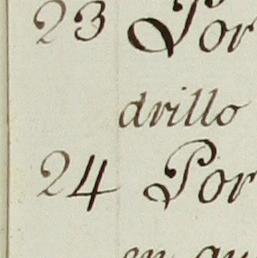 23 Por
drillo
24 Por